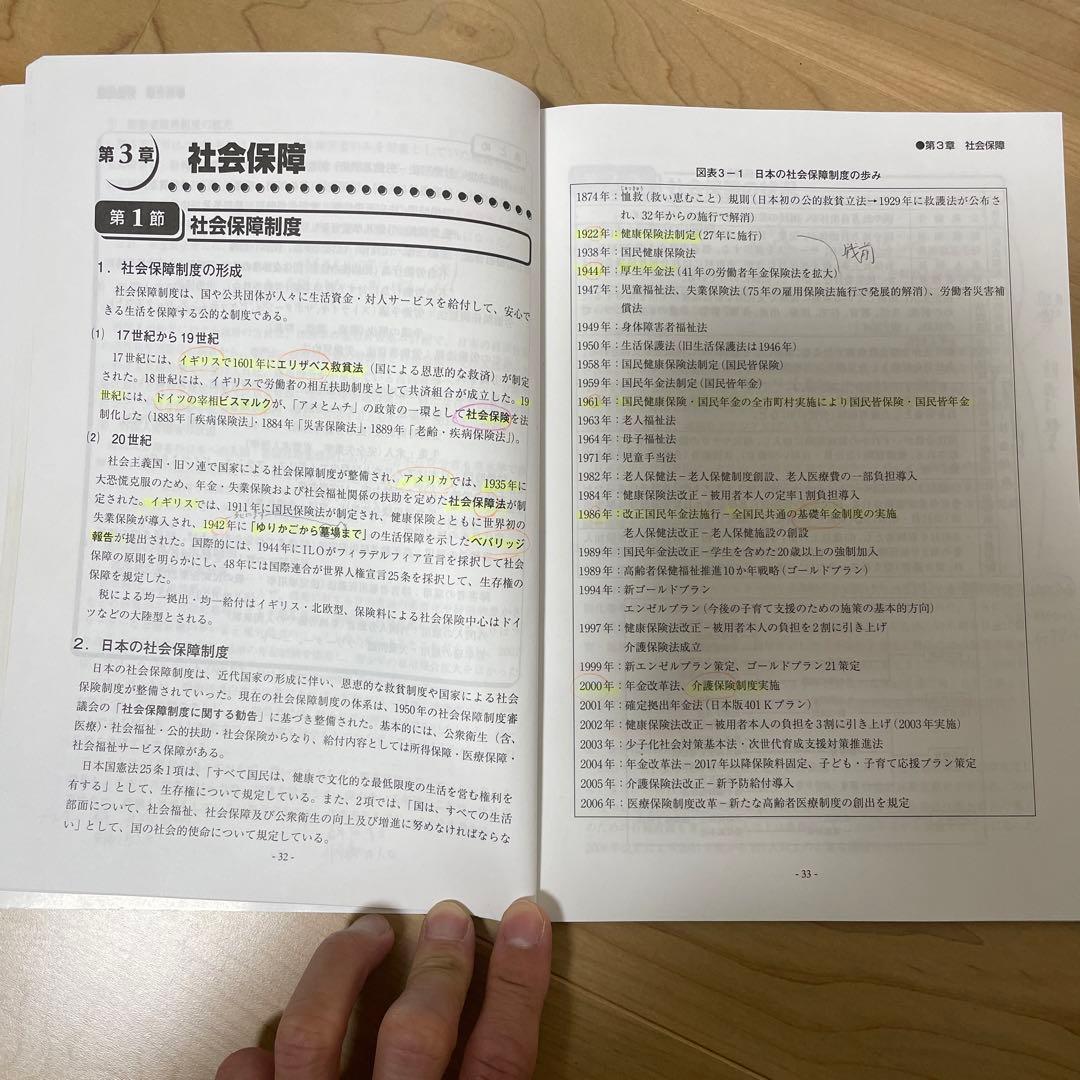 第3章 社会保障
第1節 社会保障制度
1．社会保障制度の形成
社会保障制度は、国や公共団体が人々に生活資金・対人サービスを給付して、安心で
きる生活を保障する公的な制度である。
(1) 17世紀から19世紀
17世紀には、イギリスで1601年にエリザベス救貧法（国による恩恵的な救済）が制定
された。18世紀には、イギリスで労働者の相互扶助制度として共済組合が成立した。19
世紀には、ドイツの宰相ビスマルクが、「アメとムチ」の政策の一環として社会保険を法
制化した（1883年「疾病保険法」・1884年「災害保険法」・1889年「老齢・疾病保険法」）。
(2) 20世紀
社会主義国・旧ソ連で国家による社会保障制度が整備され、アメリカでは、1935年に
大恐慌克服のため、年金・失業保険および社会福祉関係の扶助を定めた社会保障法が制
定された。イギリスでは、1911年に国民保険法が制定され、健康保険とともに世界初の
失業保険が導入され、1942年に「ゆりかごから墓場まで」の生活保障を示したベバリッジ
報告が提出された。国際的には、1944年にILOがフィラデルフィア宣言を採択して社会
保障の原則を明らかにし、48年には国際連合が世界人権宣言25条を採択して、生存権の
保障を規定した。
税による均一拠出・均一給付はイギリス・北欧型、保険料による社会保険中心はドイ
ツなどの大陸型とされる。
2．日本の社会保障制度
日本の社会保障制度は、近代国家の形成に伴い、恩恵的な救貧制度や国家による社会
保険制度が整備されていった。現在の社会保障制度の体系は、1950年の社会保障制度審
議会の「社会保障制度に関する勧告」に基づき整備された。基本的には、公衆衛生（含、
医療）・社会福祉・公的扶助・社会保険からなり、給付内容としては所得保障・医療保障・
社会福祉サービス保障がある。
日本国憲法25条1項は、「すべて国民は、健康で文化的な最低限度の生活を営む権利を
有する」として、生存権について規定している。また、2項では、「国は、すべての生活
部面について、社会福祉、社会保障及び公衆衛生の向上及び増進に努めなければならな
い」として、国の社会的使命について規定している。
- 32 -
●第3章 社会保障
図表3－1 日本の社会保障制度の歩み
1874年：恤救（救い恵むこと）規則（日本初の公的救貧立法→1929年に救護法が公布さ
れ、32年からの施行で解消）
1922年：健康保険法制定（27年に施行）
1938年：国民健康保険法
戦前
1944年：厚生年金法（41年の労働者年金保険法を拡大）
1947年：児童福祉法、失業保険法（75年の雇用保険法施行で発展的解消）、労働者災害補
償法
1949年：身体障害者福祉法
1950年：生活保護法（旧生活保護法は1946年）
1958年：国民健康保険法制定（国民皆保険）
1959年：国民年金法制定（国民皆年金）
1961年：国民健康保険・国民年金の全市町村実施により国民皆保険・国民皆年金
1963年：老人福祉法
1964年：母子福祉法
1971年：児童手当法
1982年：老人保健法－老人保健制度創設、老人医療費の一部負担導入
1984年：健康保険法改正－被用者本人の定率1割負担導入
1986年：改正国民年金法施行－全国民共通の基礎年金制度の実施
老人保健法改正－老人保健施設の創設
1989年：国民年金法改正－学生を含めた20歳以上の強制加入
1989年：高齢者保健福祉推進10か年戦略（ゴールドプラン）
1994年：新ゴールドプラン
エンゼルプラン（今後の子育て支援のための施策の基本的方向）
1997年：健康保険法改正－被用者本人の負担を2割に引き上げ
介護保険法成立
1999年：新エンゼルプラン策定、ゴールドプラン21策定
2000年：年金改革法、介護保険制度実施
2001年：確定拠出年金法（日本版401Kプラン）
2002年：健康保険法改正－被用者本人の負担を3割に引き上げ（2003年実施）
2003年：少子化社会対策基本法・次世代育成支援対策推進法
2004年：年金改革法－2017年以降保険料固定、子ども・子育て応援プラン策定
2005年：介護保険法改正－新予防給付導入
2006年：医療保険制度改革－新たな高齢者医療制度の創出を規定
- 33 -